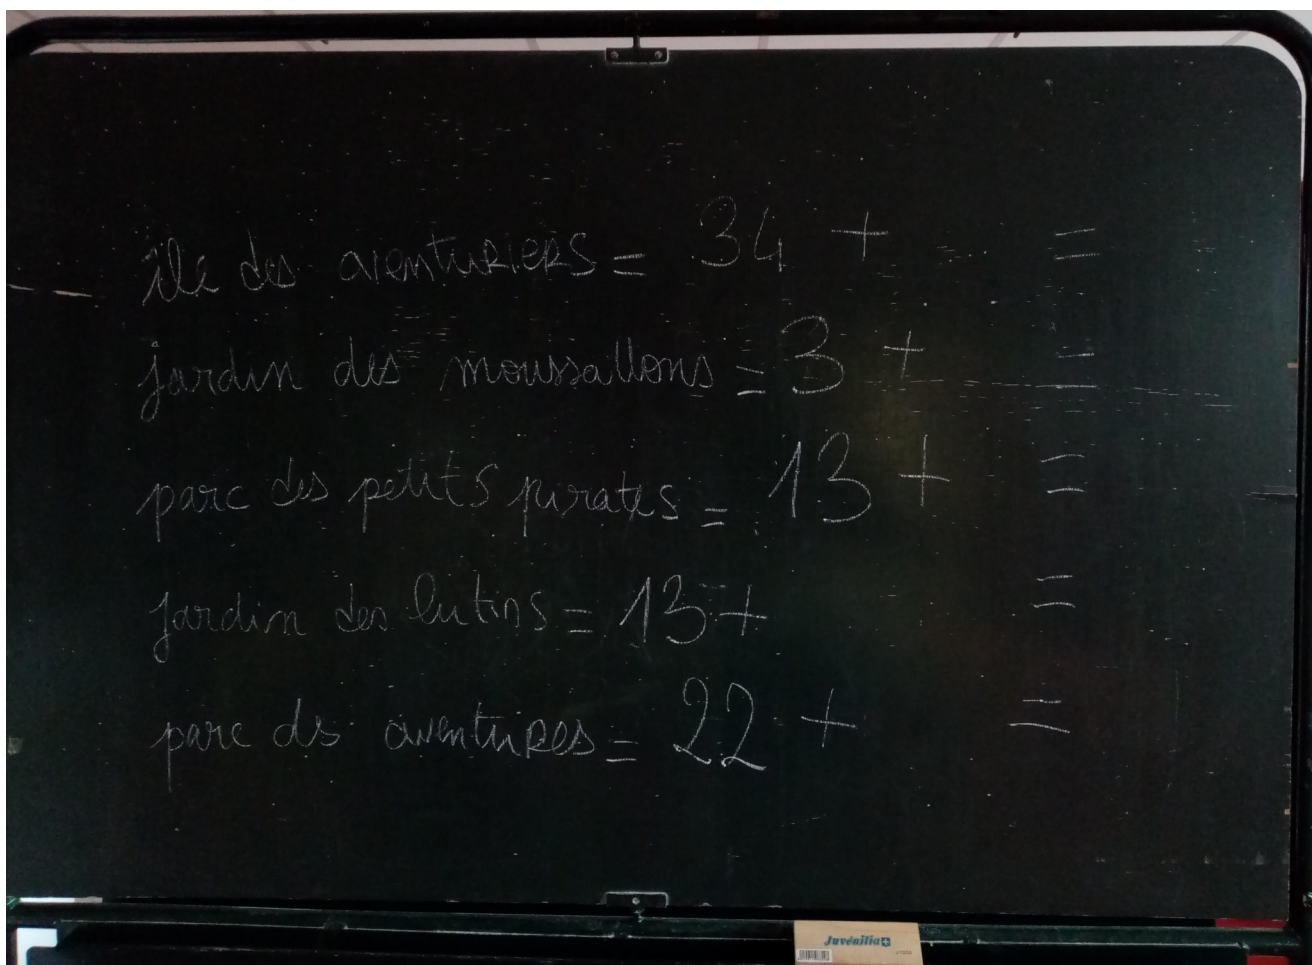 île des aventuriers = 34 + =
jardin des moussallons = 3 + =
parc des petits pirates = 13 + =
jardin des lutins = 13 + =
parc ds aventures = 22 + =
Juvénilia